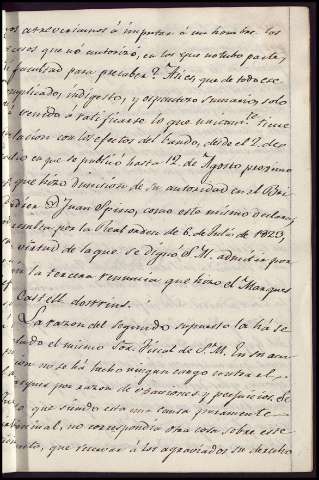 nos atreveriamos á imputar á un hombre los
excesos que no autorizó, en los que no tubo parte,
ni facultad para precaber? Asi es, que de todo ese
complicado, indigesto, y espantoso sumario, solo
á venido á ratificarse lo que unicam.te tiene
relacion con los efectos del bando, desde el 2 de
Julio en que se publicó hasta 12 de Agosto proximo
que hizo dimision de su autoridad en el Bri
gadier D. Juan Spino, como este mismo declara,
resulta por la Real orden de 6 de Julio de 1823,
virtud de la que se dignó S. M. admitir por
fin la tercera renuncia que hizo el Marques
Castell-dosrius.
La razon del segundo supuesto la há se
ñalado el mismo Sor. Fiscal de S. M. En su acu
cion no se há hecho ningun cargo contra el
Marques por razon de vexaciones y perjuicios,
que siendo esta una causa puramente
criminal, no correspondia otra cosa sobre este
punto, que reservar á los agraviados su derecho